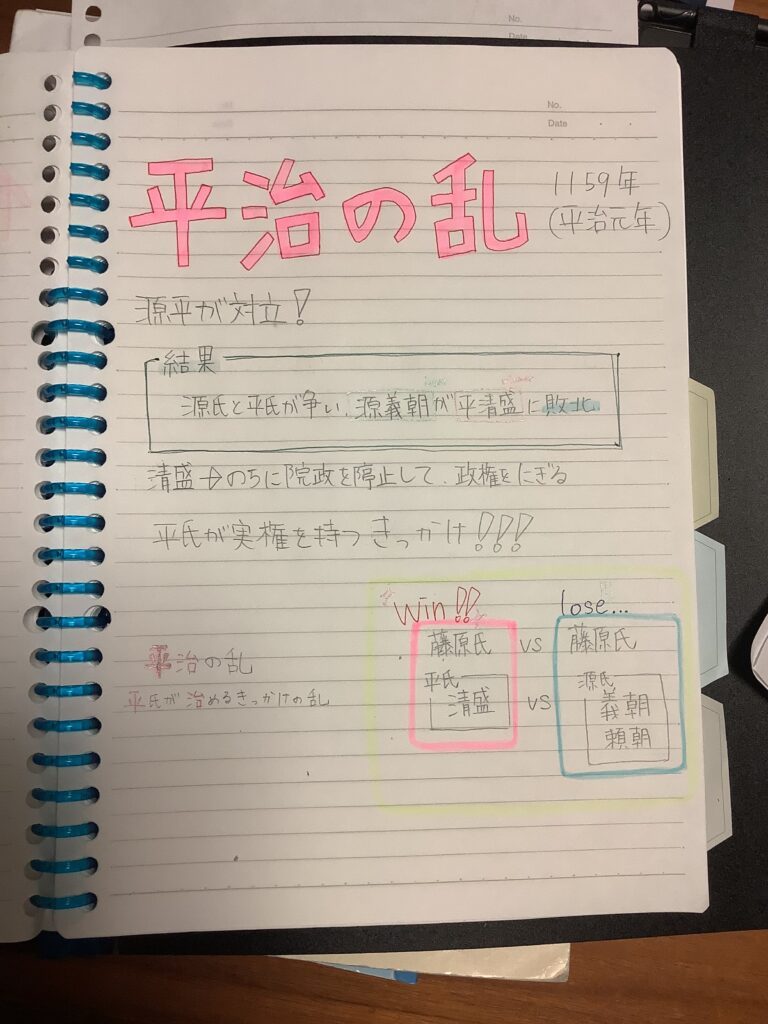 No.
Date
No.
Date
平治の乱
1159年
(平治元年)
源平が対立!
結果
源氏と平氏が争い、源義朝が平清盛に敗北
清盛→のちに院政を停止して、政権をにぎる
平氏が実権を持つきっかけ!!!
win!! lose...
藤原氏 vs 藤原氏
平氏 源氏
清盛 vs 義朝
頼朝
平治の乱
平氏が治めるきっかけの乱